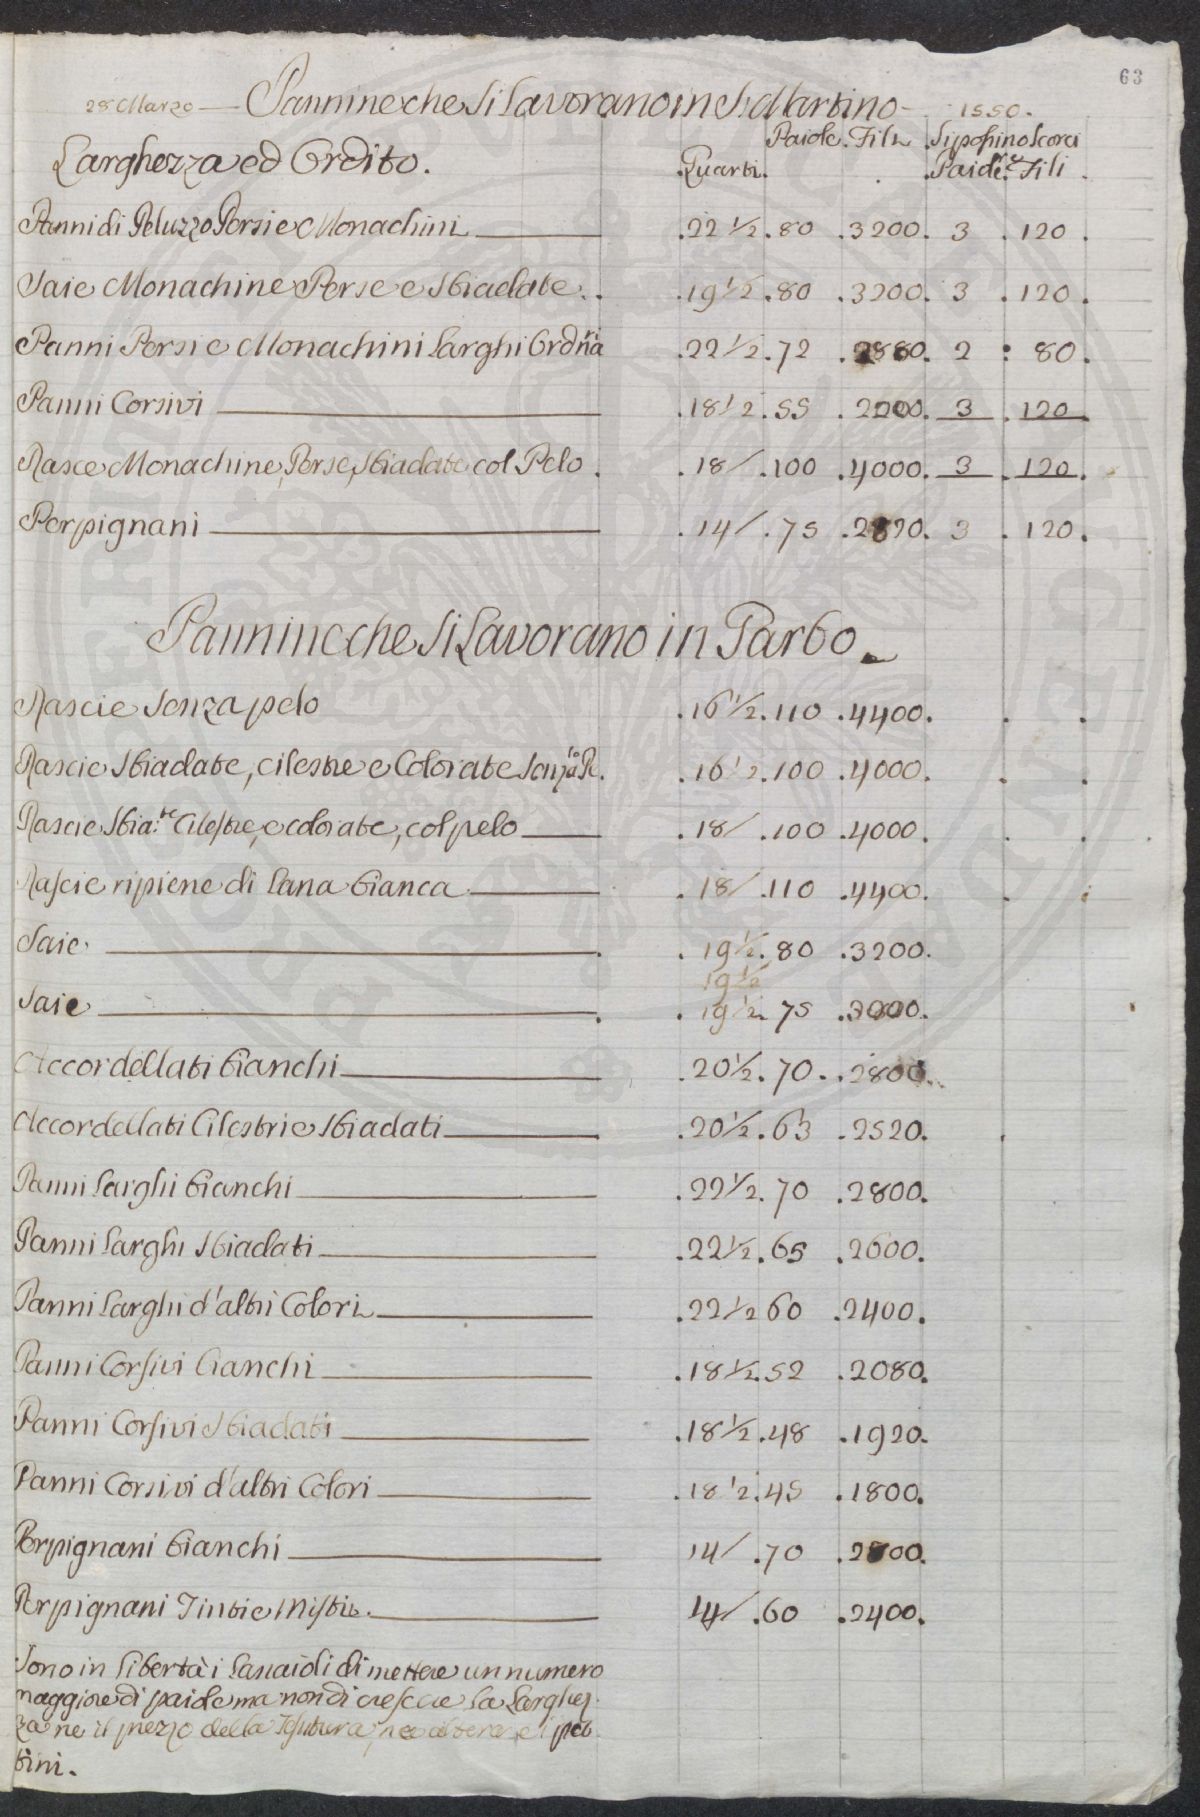 63
28 Marzo — Pannine che si lavorano in S. Martino — 1550.
Larghezza ed Ordito. .Quarti. Paiole. Fili. Si possino scorci Paiole. e Fili.
Panni di Peluzzo Persi e Monachini .22 1/2. 80 .3200. 3 . 120 .
Saie Monachine Perse e Sbiadate . . .19 1/2. 80 .3200. 3 . 120 .
Panni Persi e Monachini larghi Ordnri .22 1/2. 72 .2880. 2 : 80 .
Panni Corsivi .18 1/2. 55 .2200. 3 . 120
Rasce Monachine, Perse, Sbiadate col Pelo . .18/ .100 .4000. 3 . 120 .
Perpignani .14/ .75 .2820. 3 . 120 .
Pannine che si lavorano in Garbo
Rascie senza pelo .16 1/2. 110 .4400. . .
Rascie Sbiadate, cilestre e Colorate senza Pelo. .16 1/2. 100 .4000. . .
Rascie Sbia:te Cilestre, e colorate, col pelo .18/ .100 .4000. . .
Rascie ripiene di lana bianca .18/ .110 .4400. . .
Saie . 19 1/2. 80 .3200.
19 1/2
Saie . 19 1/2. 75 .3000.
Accordellati bianchi .20 1/2. 70. .2800.
Accordellati Cilestri e Sbiadati .20 1/2. 63 .2520.
Panni larghi bianchi .22 1/2. 70 .2800.
Panni larghi Sbiadati .22 1/2. 65 .2600.
Panni larghi d'altri Colori .22 1/2 60 .2400.
Panni Corsivi bianchi .18 1/2. 52 .2080.
Panni Corsivi Sbiadati .18 1/2. 48 .1920.
Panni Corsivi d'altri Colori .18 1/2. 45 .1800.
Perpignani bianchi 14/ .70 .2800.
Perpignani Tinti e Misti. 14/ .60 .2400.
Sono in libertà i lanaioli di mettere un numero
maggiore di paiole ma non di crescere la larghez
za ne il prezzo della tesitura, ne alterare i pet
tini.